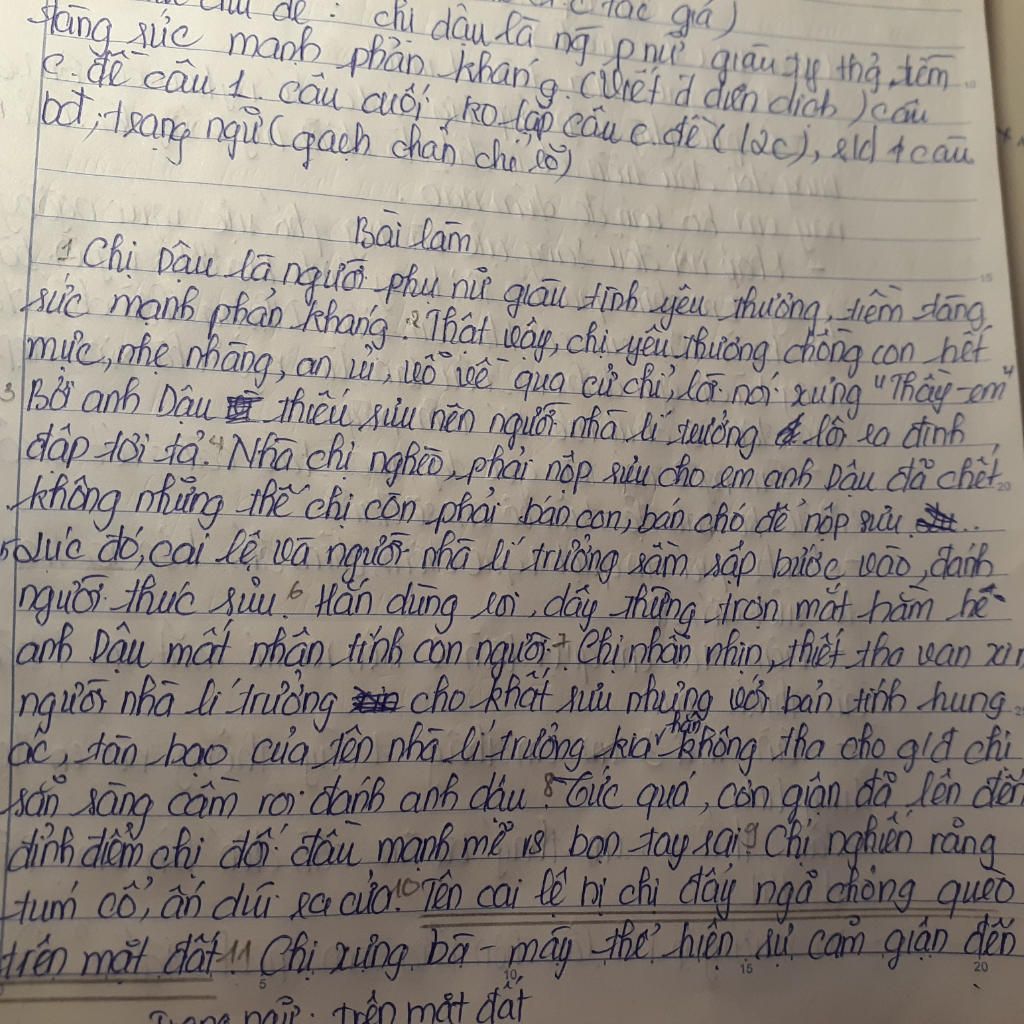 chủ đề : chị dậu là ng̃ pnữ giàu ty thg, tiềm
tàng sức mạnh phản kháng. (Viết đ diễn dịch) câu
c. đề câu 1, câu cuối ko lặp câu c. đề (12c), sld 1 câu
bđ, trạng ngữ (gạch chân chỉ rõ)
Bài làm
1 Chị Dậu là người phụ nữ giàu tình yêu thương, tiềm tàng
sức mạnh phản kháng. 2 Thật vậy, chị yêu thương chồng con hết
mực, nhẹ nhàng, an ủi, vỗ về qua cử chỉ, lời nói xưng "Thầy-em"
3 Bởi anh Dậu thiếu sưu nên người nhà lí trưởng lôi ra đình,
đập tơi tả. 4 Nhà chị nghèo, phải nộp sưu cho em anh Dậu đã chết,
không những thế chị còn phải bán con, bán chó để nộp sưu
5 Lúc đó, cai lệ và người nhà lí trưởng sầm sập bước vào, đánh
người thúc sưu. 6 Hắn dùng roi, dây thừng trợn mắt hầm hè
anh Dậu mất nhân tính con người. 7 Chị nhẫn nhịn, thiết tha van xin
người nhà lí trưởng cho khất sưu nhưng với bản tính hung
ác, tàn bạo của tên nhà lí trưởng kia hắn không tha cho gđ chị
sẵn sàng cầm roi đánh anh dậu. 8 Tức quá, cơn giận đã lên đến
đỉnh điểm chị đối đầu mạnh mẽ vs bọn tay sai. 9 Chị nghiến răng
túm cổ, ấn dúi ra cửa. 10 Tên cai lệ bị chị đẩy ngã chỏng quèo
trên mặt đất. 11 Chị xưng bà - mày thể hiện sự căm giận đến
Trạng ngữ: trên mặt đất